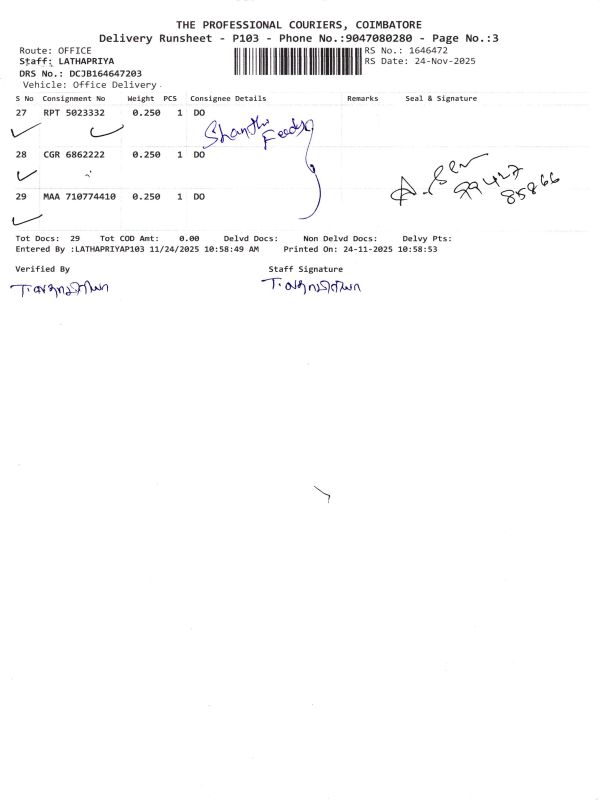 THE PROFESSIONAL COURIERS, COIMBATORE
Delivery Runsheet - P103 - Phone No.:9047080280 - Page No.:3
Route: OFFICE RS No.: 1646472
Staff: LATHAPRIYA RS Date: 24-Nov-2025
DRS No.: DCJB164647203
Vehicle: Office Delivery
S No Consignment No Weight PCS Consignee Details Remarks Seal & Signature
27 RPT 5023332 0.250 1 DO
Shanthi Feeds
28 CGR 6862222 0.250 1 DO
99427
85866
29 MAA 710774410 0.250 1 DO
Tot Docs: 29 Tot COD Amt: 0.00 Delvd Docs: Non Delvd Docs: Delvy Pts:
Entered By :LATHAPRIYAP103 11/24/2025 10:58:49 AM Printed On: 24-11-2025 10:58:53
Verified By Staff Signature